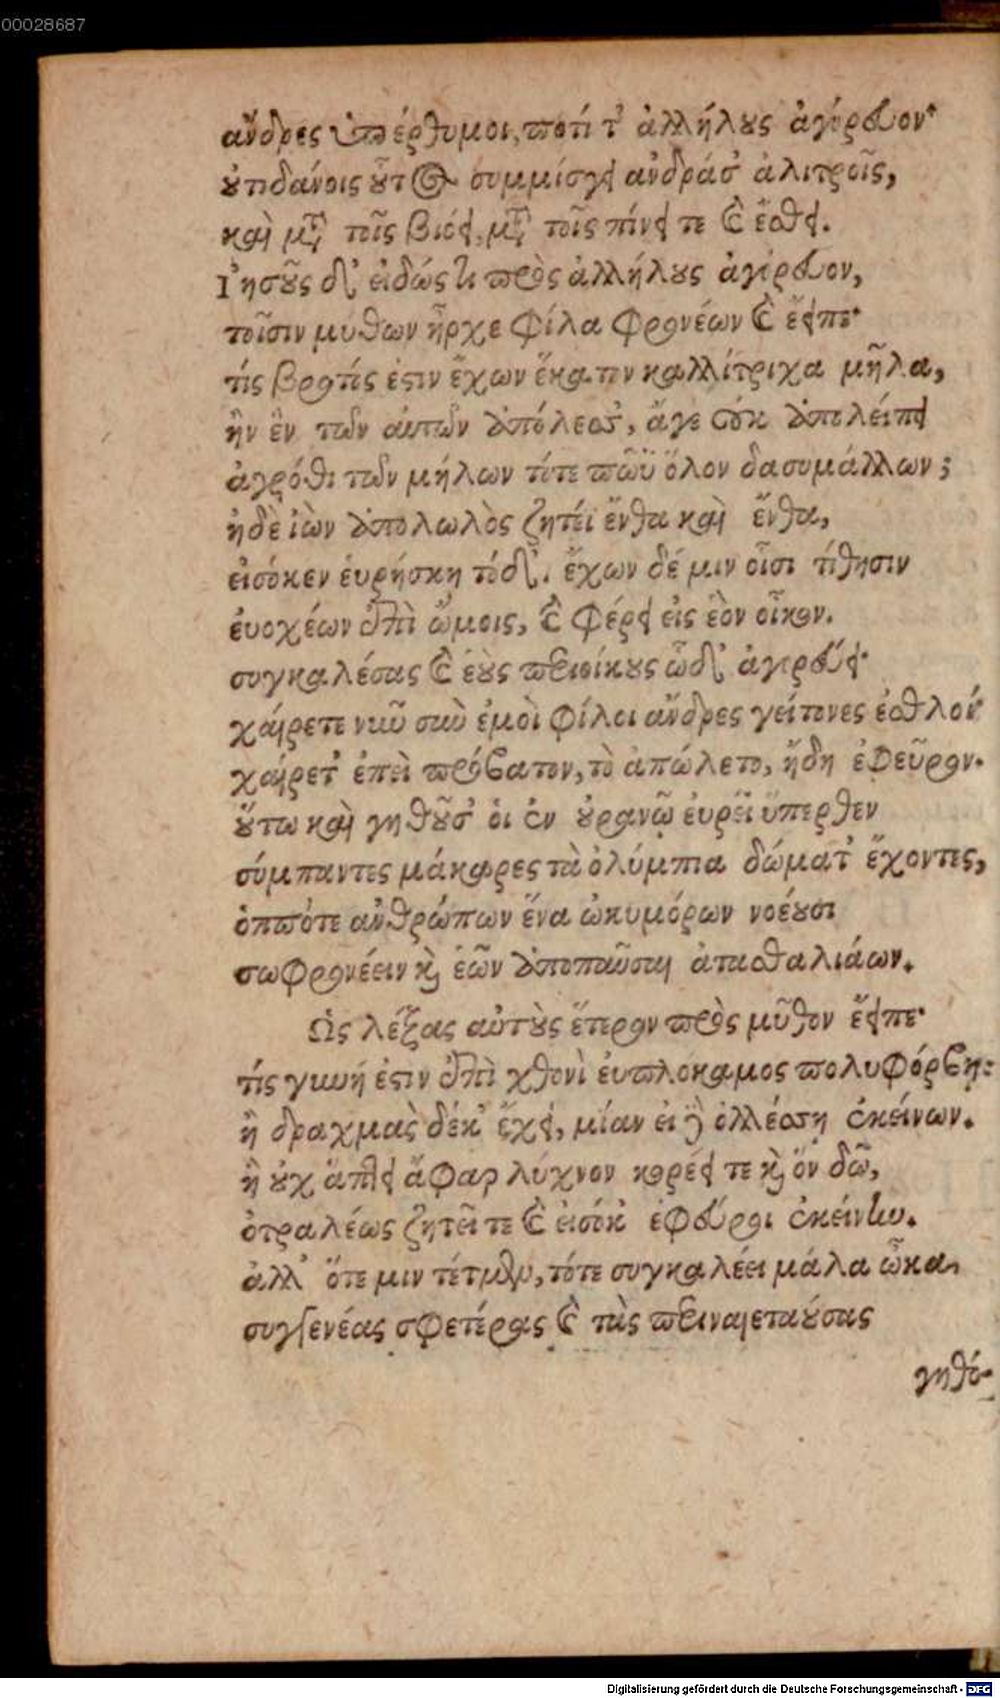 00028687
ἄνδρες ὑπέρθυμοι, ποτί τ' ἀλλήλους ἀγόρευον·
οὐτιδάνοις οὗτος συμμίσγει ἀνδράσ' ἀλιτροῖς,
καὶ μετὰ τοῖς βιόει, μετὰ τοῖς πίνει τε καὶ ἔσθει.
Ἰησοῦς δ' εἰδώς τι πρὸς ἀλλήλους ἀγόρευον,
τοῖσιν μύθων ἦρχε φίλα φρονέων καὶ ἔειπε·
τίς βροτίς ἐστιν ἔχων ἕκατον καλλίτριχα μῆλα,
ἢν ἓν τῶν αὐτῶν ἀπόλεσσ', ἄγε οὐκ ἀπολείπει
ἀγρόθι τῶν μήλων τότε πῶϋ ὅλον δασυμάλλων;
ἠδὲ ἰὼν ἀπολωλὸς ζητέι ἔνθα καὶ ἔνθα,
εἰσόκεν εὑρήσκη τόδ'. ἔχων δέ μιν οἷσι τίθησιν
εὐοχέων ἐπὶ ὤμοις, καὶ φέρει εἰς ἑὸν οἶκον.
συγκαλέσας καὶ ἑοὺς περιοίκους ὧδ' ἀγορεύει·
χαίρετε νῦν σὺν ἐμοὶ φίλοι ἄνδρες γείτονες ἐσθλοί
χαίρετ' ἐπεὶ πρόβατον, τὸ ἀπώλετο, ἤδη ἐφεῦρον.
οὕτω καὶ γηθοῦσ' οἱ ἐν οὐρανῷ εὐρέϊ ὕπερθεν
σύμπαντες μάκαρες τὰ ὀλύμπια δώματ' ἔχοντες,
ὁππότε ἀνθρώπων ἕνα ὠκυμόρων νοέουσι
σωφρονέειν καὶ ἑῶν ἀποπαῦσαι ἀτασθαλιάων.
Ὣς λέξας αὐτοὺς ἕτερον πρὸς μῦθον ἔειπε·
τίς γυνή ἐστιν ἐπὶ χθονὶ ἐυπλόκαμος πολυφόρβη:
ἢ δραχμὰς δέκ' ἔχει, μίαν εἰ δὲ ὀλλέσση ἐκείνων.
ἢ οὐχ ἅπτει ἄφαρ λύχνον κορέει τε καὶ ὃν δῶ,
ὀτραλέως ζητεῖ τε καὶ εἰσόκ' ἐφεύροι ἐκείνην.
ἀλλ' ὅτε μιν τέτμην, τότε συγκαλέει μάλα ὦκα,
συγγενέας σφετέρας καὶ τὰς περιναιεταούσας
γηθό-
Digitalisierung gefördert durch die Deutsche Forschungsgemeinschaft - DFG